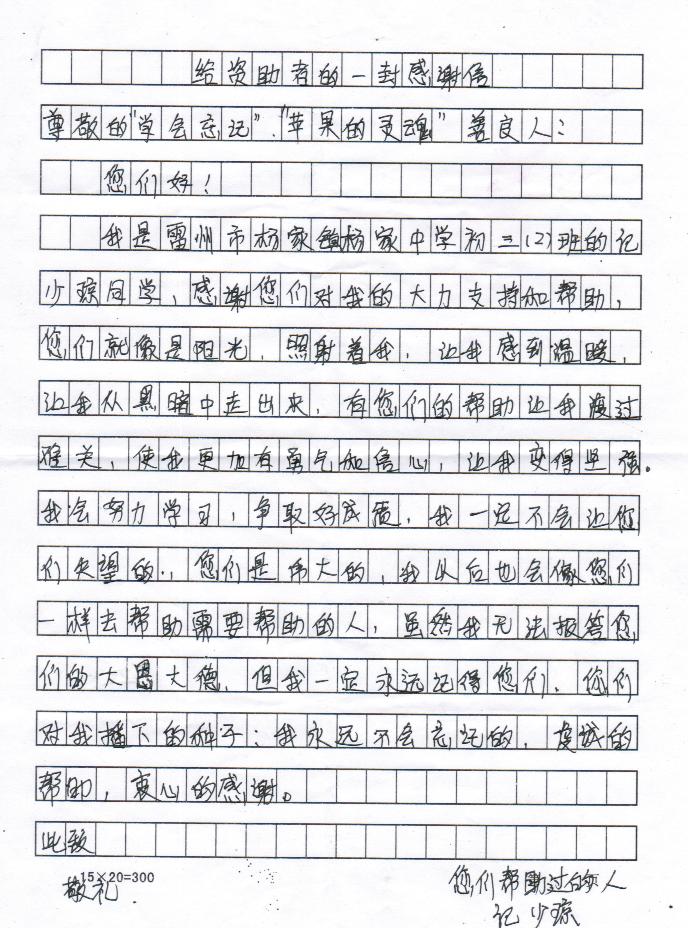 给资助者的一封感谢信
尊敬的"学会忘记"."苹果的灵魂"善良人:
您们好!
我是雷州市杨家镇杨家中学初三(2)班的记
少琼同学,感谢您们对我的大力支持和帮助,
您们就像是阳光,照射着我,让我感到温暖,
让我从黑暗中走出来,有您们的帮助让我渡过
难关,使我更加有勇气和信心,让我变得坚强。
我会努力学习,争取好成绩,我一定不会让您
们失望的.,您们是伟大的,我以后也会像您们
一样去帮助需要帮助的人,虽然我无法报答您
们的大恩大德,但我一定永远记得您们,您们
对我播下的种子:我永远不会忘记的,虔诚的
帮助,衷心的感谢。
此致
15×20=300
敬礼
您们帮助过的人
记少琼